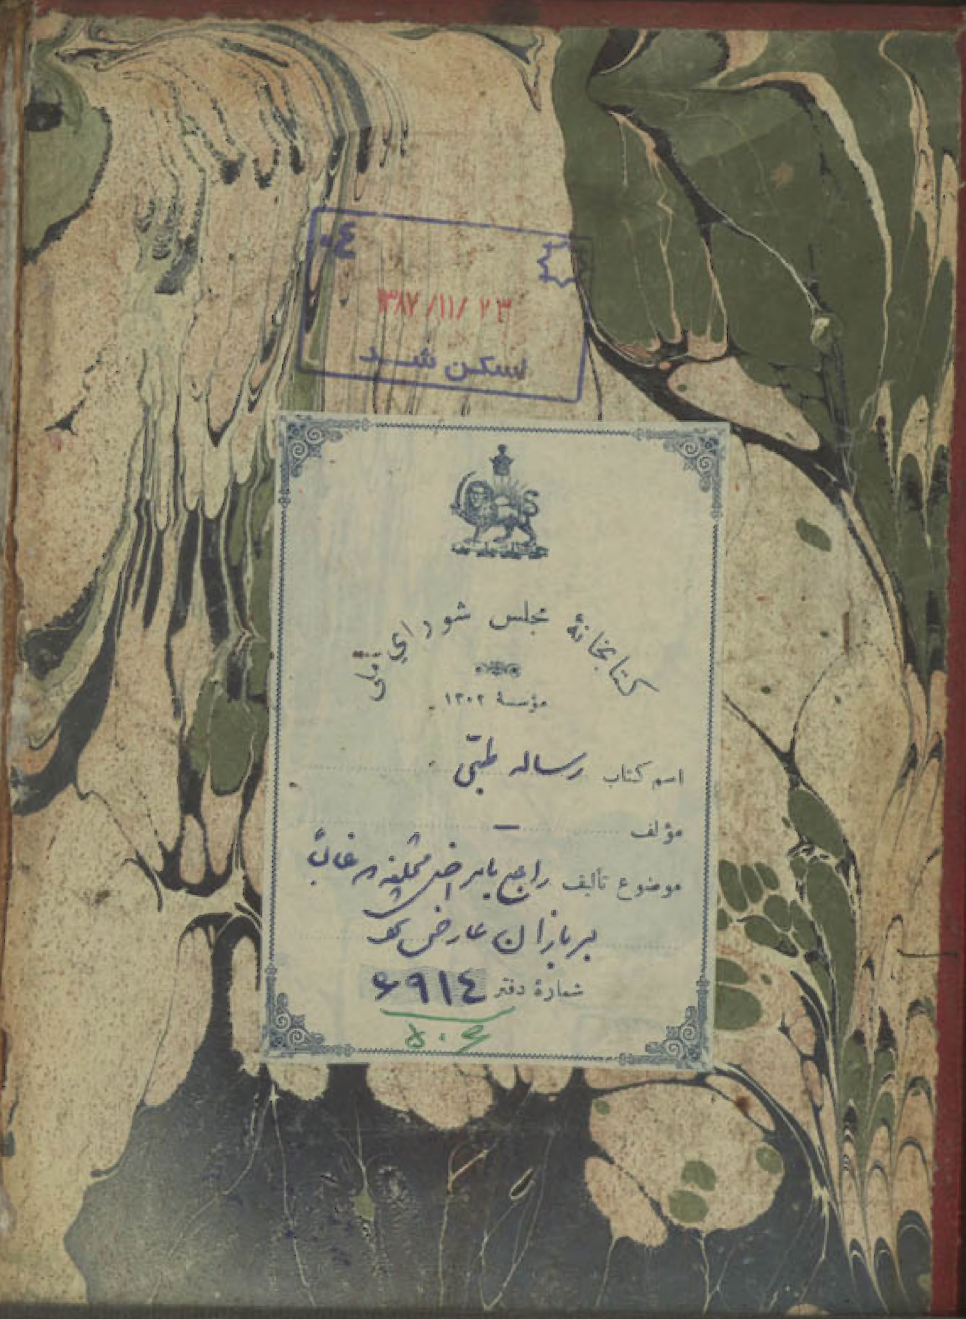 ۱۳۸۷/۱۱/۲۳
اسکن شد
کتابخانهٔ مجلس شورای ملی
مؤسسهٔ ۱۳۰۲
اسم کتاب رساله طبّی
مؤلف —
موضوع تألیف راجع بامراض مختلفه غالباً
عارض
شمارهٔ دفتر ۶۹۱٤